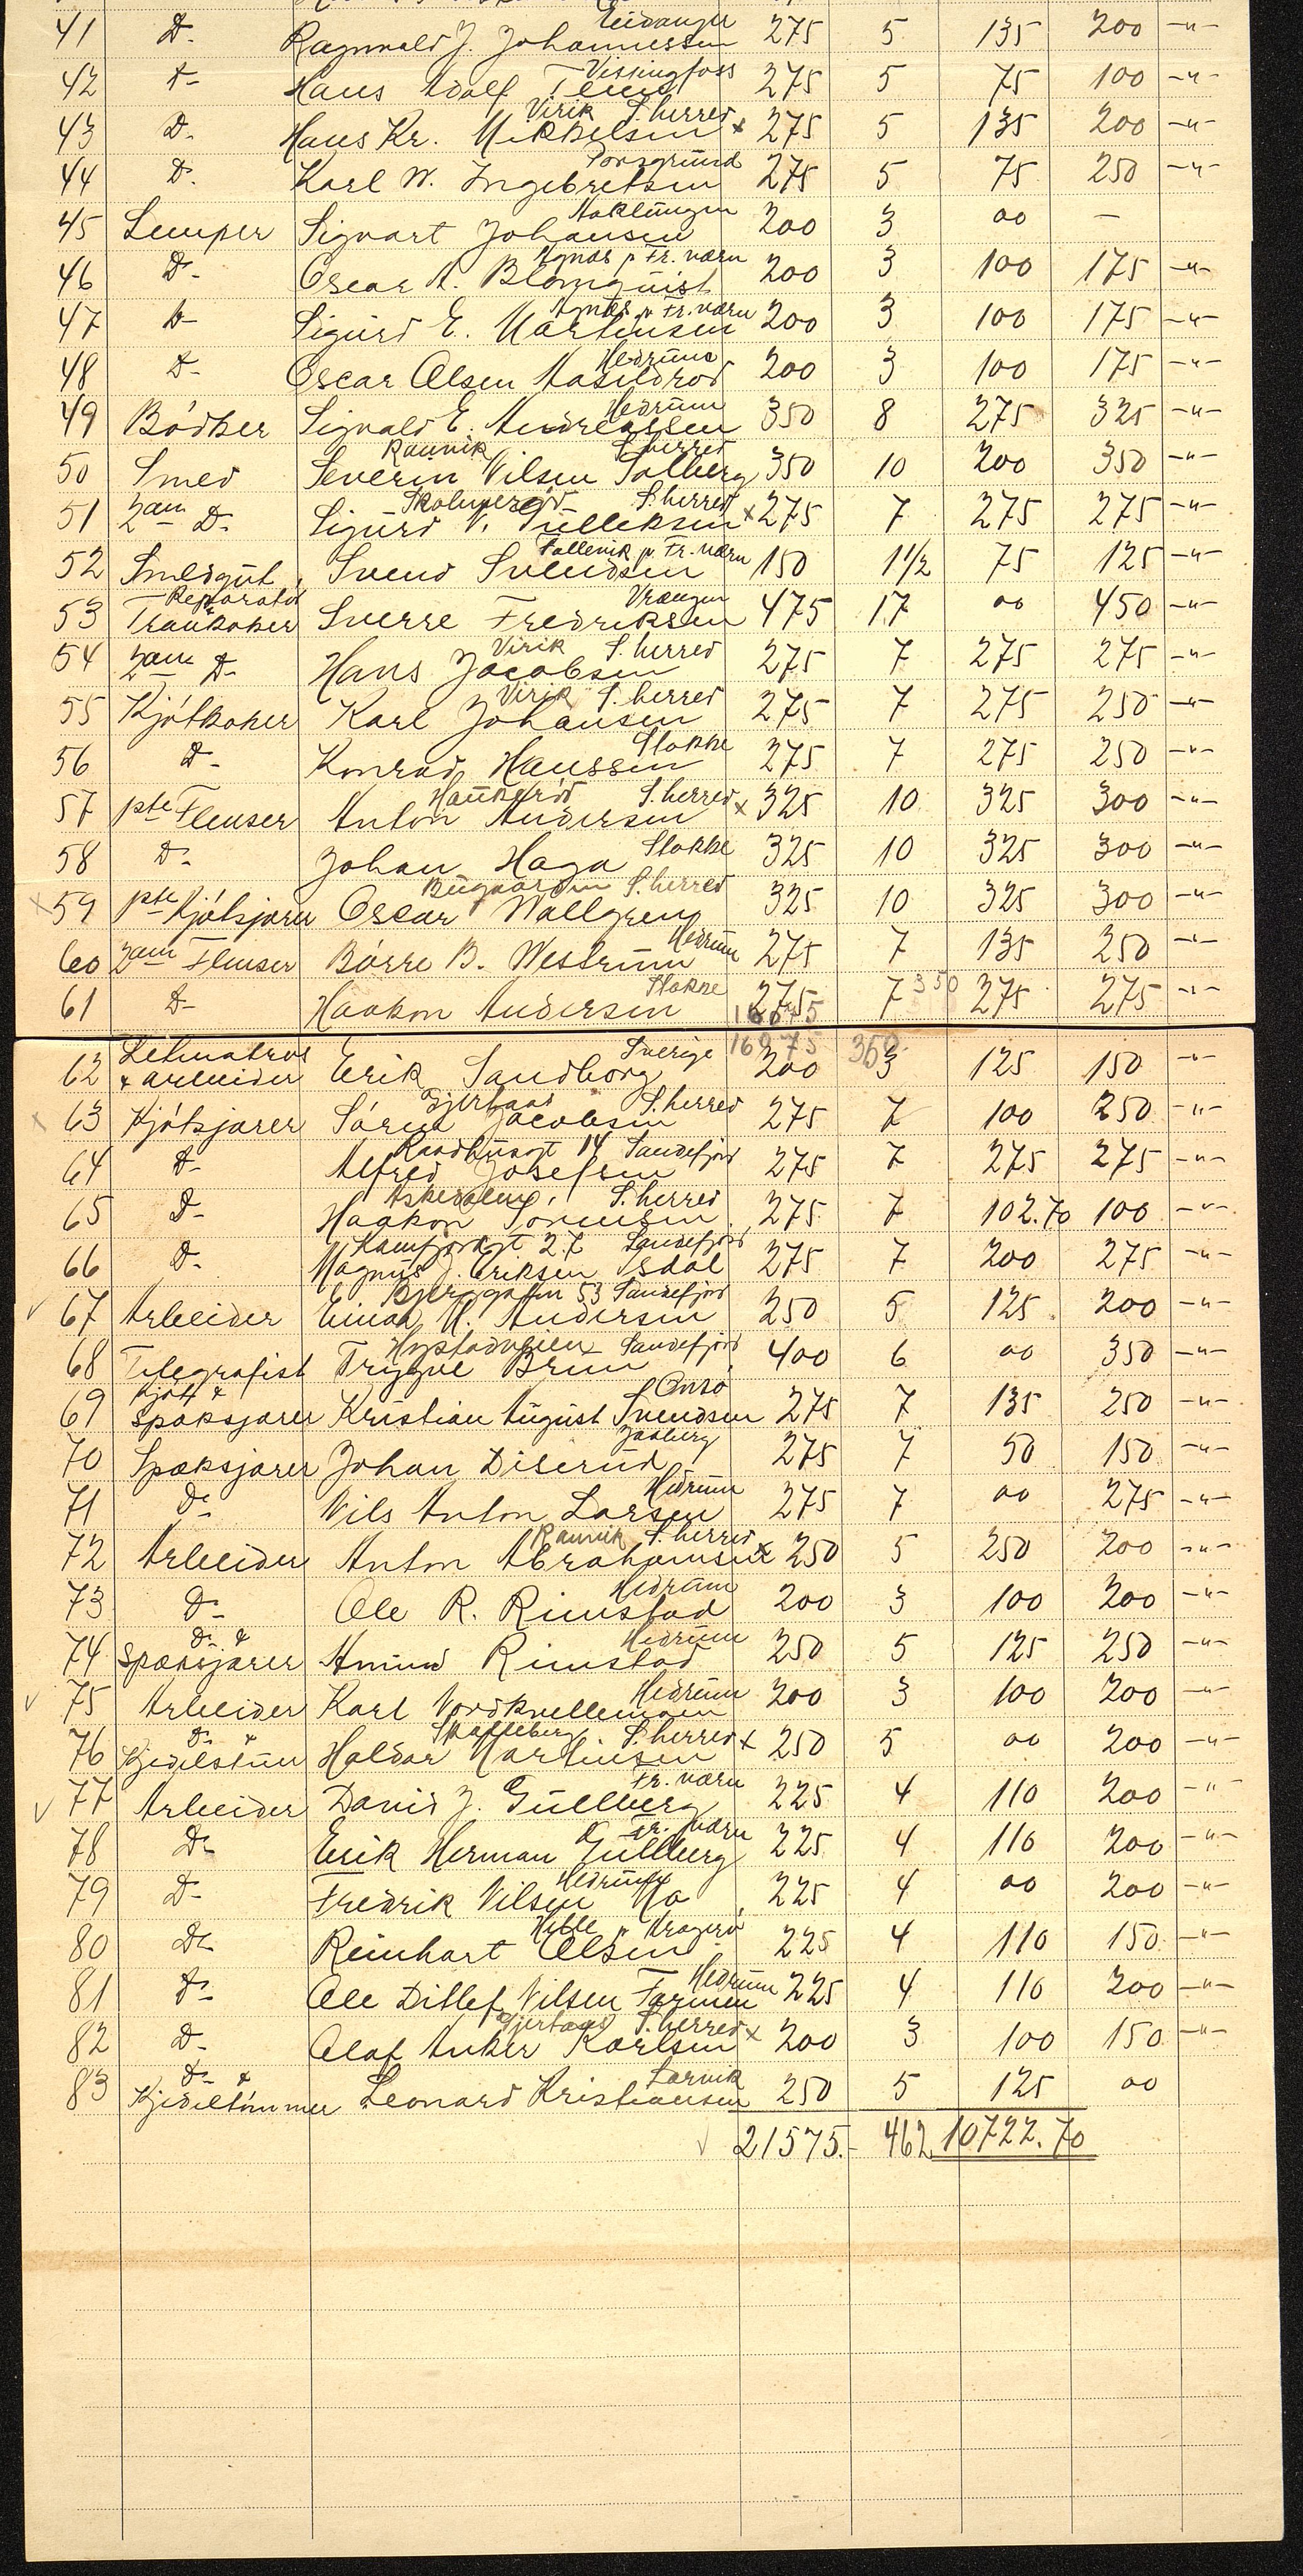 Eidanger
41 Do Ragnvald J. Johannessen 275 5 135 200 -"-
Vissingfoss
42 Do Hans Adolf 275 5 75 100 -"-
Virik S. herred
43 Do Hans Kr. Mikkelsen x 275 5 135 200 -"-
Porsgrund
44 Do Karl W. Ingebretsen 275 5 75 250 -"-
Naklungen
45 Lemper Sigvart Johansen 200 3 00 —
Agnæs p Fr. værn
46 Do Oscar A. Blomquist 200 3 100 175 -"-
Agnæs p Fr. værn
47 Do Sigurd E. Martinsen 200 3 100 175 -"-
Hedrum
48 Do Oscar Olsen Aasildrød 200 3 100 175 -"-
Hedrum
49 Bødker Sigvald E. Andreassen 350 8 275 325 -"-
Raunik S. herred
50 Smed Severin Nilsen Solberg 350 10 200 350 -"-
S. herred
51 2den Do Sigurd Gulleksen x 275 7 275 275 -"-
Fallevik p. Fr. værn
52 Smedgut Svend Svendsen 150 1 1/2 75 125 -"-
Reparatør Vrængen
53 Trankoker Sverre Fredriksen 475 17 00 450 -"-
Virik S. herred
54 2den Do Hans Jacobsen 275 7 275 275 -"-
Virik S. herred
55 Kjøtkoker Karl Johansen 275 7 275 250 -"-
Stokke
56 Do Konrad Hanssen 275 7 275 250 -"-
Haukerød S. herred
57 1ste Flenser Anton Andersen x 325 10 325 300 -"-
Stokke
58 Do Johan Haga 325 10 325 300 -"-
Bugaarden S. herred
x 59 1ste Kjøtsjærer Oscar Wallgren 325 10 325 300 -"-
Hedrum
60 2den Flenser Børre B. Westrum 275 7 135 250 -"-
Stokke
61 Do Haakon Andersen 275 7 350 275 275 -"-
16075
16075 350
Letmatros Sverige
62 & arbeider Erik Sandborg 200 3 125 150 -"-
Gjertaas S. herred
x 63 Kjøtsjærer Søren Jacobsen 275 7 100 250 -"-
Raadhusgt 14 Sandefjord
64 Do Alfred Josefsen 275 7 275 275 -"-
S. herred
65 Do Haakon Sørensen 275 7 102.70 100 -"-
Kamfjordgt 27 Sandefjord
66 Do Magnus J. Eriksen Isdal 275 7 200 275 -"-
Bjerggaten 53 Sandefjord
✓ 67 Arbeider Einar M. Andersen 250 5 125 200 -"-
Hystadveien Sandefjord
68 Telegrafist Trygve Brun 400 6 00 350 -"-
Kjøtt & Onsø
69 spæksjærer Kristian August Svendsen 275 7 135 250 -"-
Jaaberg
70 Spæksjærer Johan Diserud 275 7 50 150 -"-
Hedrum
71 Do Nils Anton Larsen 275 7 00 275 -"-
Raunik S. herred
72 Arbeider Anton Abrahamsen x 250 5 250 200 -"-
Hedrum
73 Do Ole R. Rimstad 200 3 100 200 -"-
Do & Hedrum
74 spæksjærer Amund Rimstad 250 5 125 250 -"-
Hedrum
✓ 75 Arbeider Karl Nordkvellemoen 200 3 100 200 -"-
Do & S. herred
76 Halvar Martinsen x 250 5 00 200 -"-
Fr. værn
✓ 77 Arbeider David J. Gullberg 225 4 110 200 -"-
Fr. værn
78 Do Erik Herman Gullberg 225 4 110 200 -"-
Hedrum
79 Do Fredrik Nilsen Mo 225 4 00 200 -"-
Helle p Kragerø
80 Do Reinhart Olsen 225 4 110 150 -"-
Hedrum
81 Do Ole Ditlef Nilsen Farmen 225 4 110 200 -"-
Gjertaas S. herred
82 Do Olaf Anker Karlsen x 200 3 100 150 -"-
Do & Larvik
83 Kjedeltømmer Leonard Kristiansen 250 5 125 00
✓ 21575.- 462 10722.70